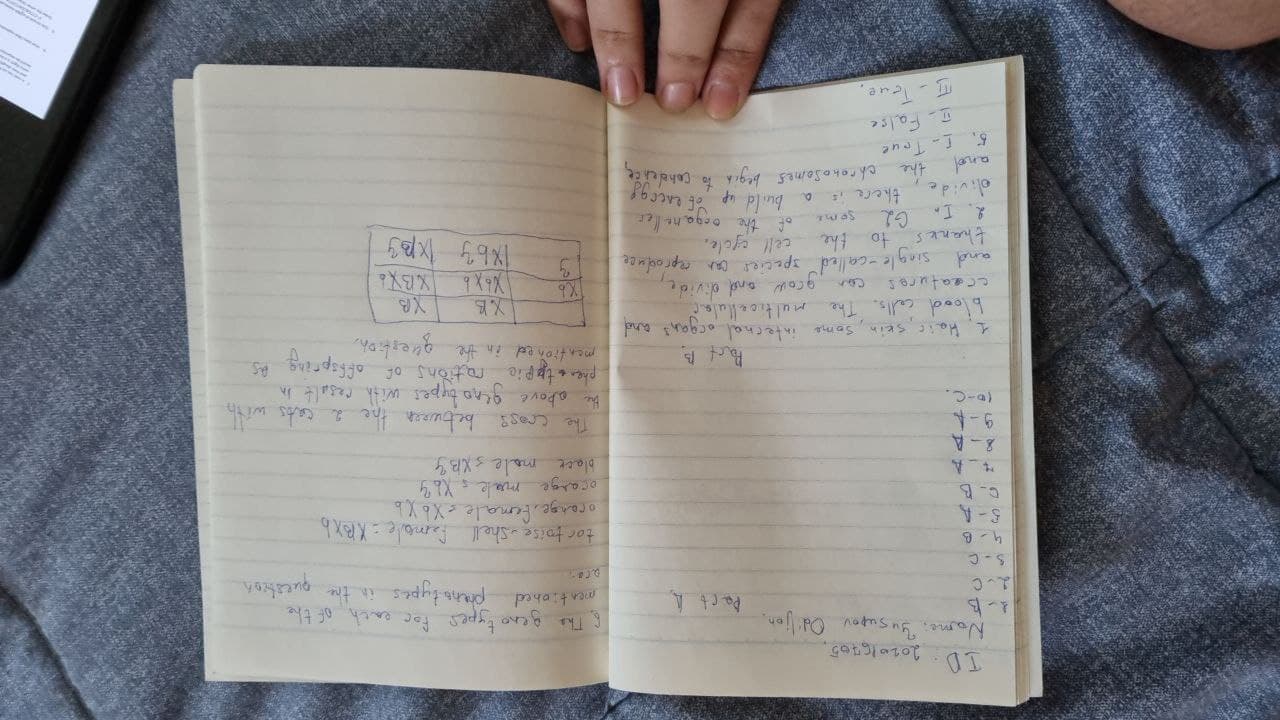 ID: 202016705.
Name: Jusupov Odiljon.
Part A.
1-B
2-C
3-C
4-B
5-A
6-B
7-A
8-A
9-A
10-C.
Part B.
1. Hair, skin, some internal organs and
blood cells. The multicellular
creatures can grow and divide,
and single-called species can reproduce
thanks to the cell cycle.
2. In G2 some of the organelles
divide, there is a build up of energy
and the chromosomes begin to condence,
5. I-True
II-False
III-True.
6. The genotypes for each of the
mentioned phenotypes in the question
are:
tortoise-shell female = XBXb
orange female = XbXb
orange male = Xby
black male = XBy
The cross between the 2 cats with
the above genotypes with result in
phenotypic rations of offspring as
mentioned in the question.
XB XB
Xb XbXb XBXb
y Xby XBy